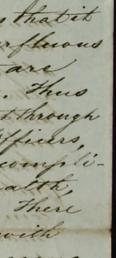 that it
erfluous
are
. Thus
t through
fficers,
compli-
ealth,
There
with